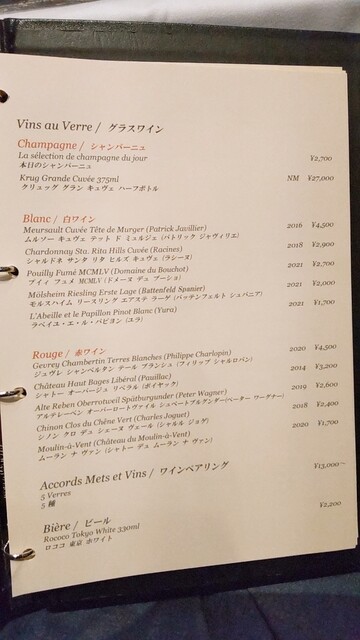 Vins au Verre / グラスワイン
Champagne / シャンパーニュ
La sélection de champagne du jour ¥2,700
本日のシャンパーニュ
Krug Grande Cuvée 375ml NM ¥27,000
クリュッグ グラン キュヴェ ハーフボトル
Blanc / 白ワイン
Meursault Cuvée Tête de Murger (Patrick Javillier) 2016 ¥4,500
ムルソー キュヴェ テット ド ミュルジェ (パトリック ジャヴィリエ)
Chardonnay Sta. Rita Hills Cuvée (Racines) 2018 ¥2,900
シャルドネ サンタ リタ ヒルズ キュヴェ (ラシーヌ)
Pouilly Fumé MCMLV (Domaine du Bouchot) 2021 ¥2,700
プイィ フュメ MCMLV (ドメーヌ デュ ブーショ)
Mölsheim Riesling Erste Lage (Battenfeld Spanier) 2021 ¥2,000
モルスハイム リースリング エアステ ラーゲ (バッテンフェルト シュパニア)
L'Abeille et le Papillon Pinot Blanc (Yura) 2021 ¥1,700
ラベイユ・エ・ル・パピヨン (ユラ)
Rouge / 赤ワイン
Gevrey Chambertin Terres Blanches (Philippe Charlopin) 2020 ¥4,500
ジュヴレ シャンベルタン テール ブランシュ (フィリップ シャルロパン)
Château Haut Bages Libéral (Pauillac) 2014 ¥3,200
シャトー オー バージュ リベラル (ポイヤック)
Alte Reben Oberrotweil Spätburgunder (Peter Wagner) 2019 ¥2,600
アルテレーベン オーバーロートヴァイル シュペートブルグンダー (ペーター ワーグナー)
Chinon Clos du Chêne Vert (Charles Joguet) 2018 ¥2,400
シノン クロ デュ シェーヌ ヴェール (シャルル ジョゲ)
Moulin-à-Vent (Château du Moulin-à-Vent) 2020 ¥1,700
ムーラン ナ ヴァン (シャトー デュ ムーラン ナ ヴァン)
Accords Mets et Vins / ワインペアリング
5 Verres ¥13,000~
5 種
Bière / ビール
Rococo Tokyo White 330ml ¥2,200
ロココ 東京 ホワイト